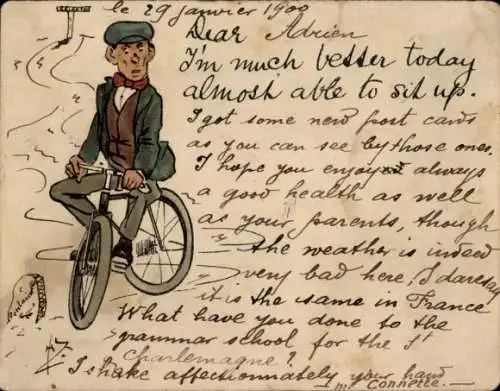 le 29 janvier 1900
Dear Adrien
I'm much better today
almost able to sit up.
I got some new post cards
as you can see by those ones.
I hope you enjoyed always
a good health as well
as your parents, though
the weather is indeed
very bad here, I daresay
it is the same in France
What have you done to the
grammar school for the St
Charlemagne?
I shake affectionnately your hand